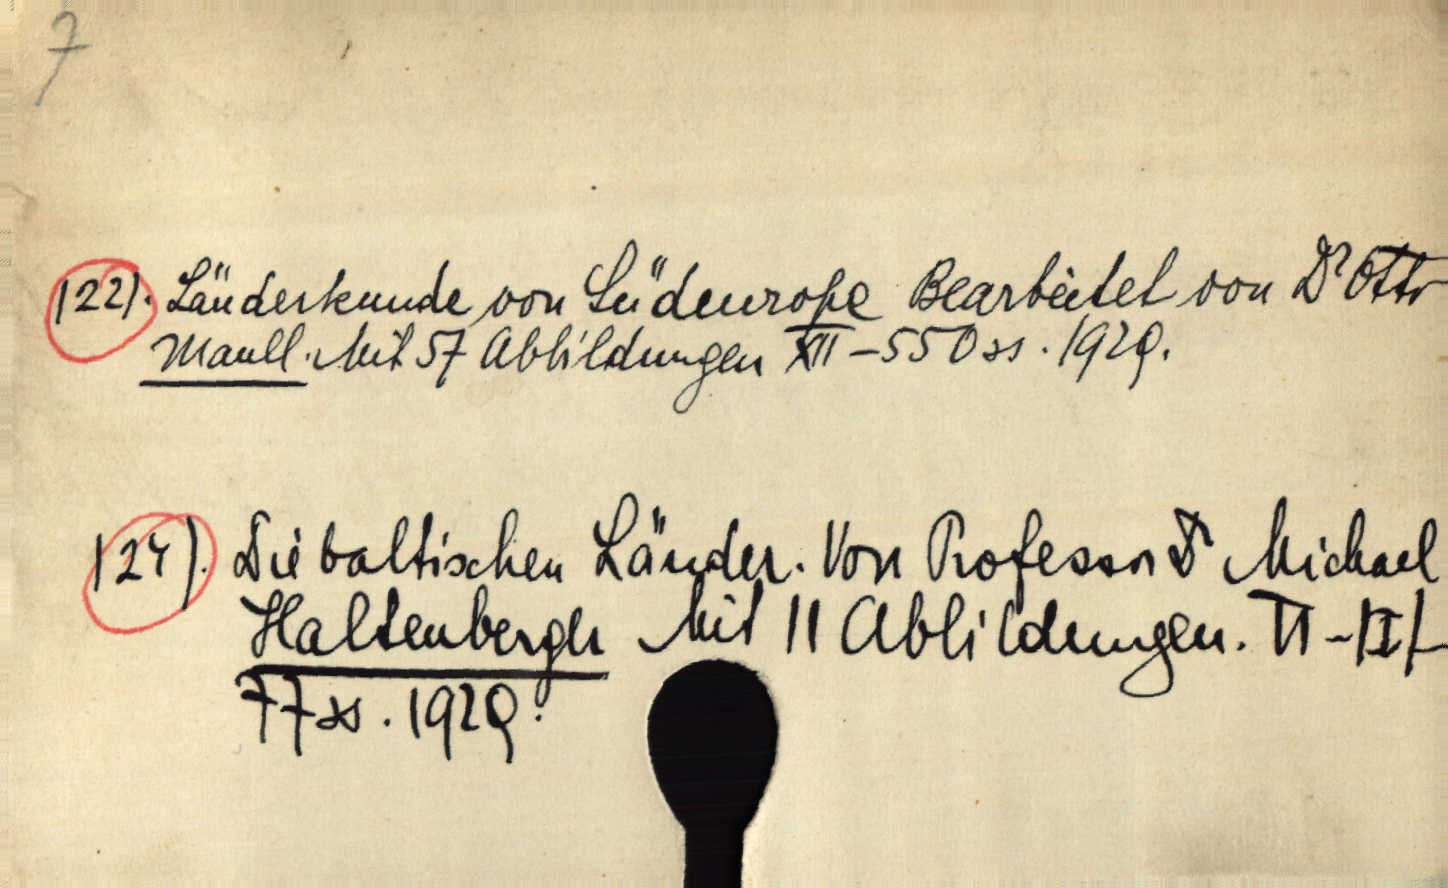 7
122). Länderkunde von Südeuropa Bearbeitet von Dr Otto
Maull. Mit 57 Abbildungen XII – 550 ss. 1929.
124). Die baltischen Länder. Von Professor Dr Michael
Haltenbergh Mit 11 Abbildungen. VI –
77 ss. 1929.